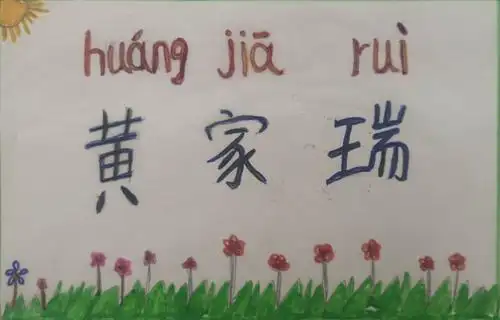 huáng jiā ruì
黄 家 瑞